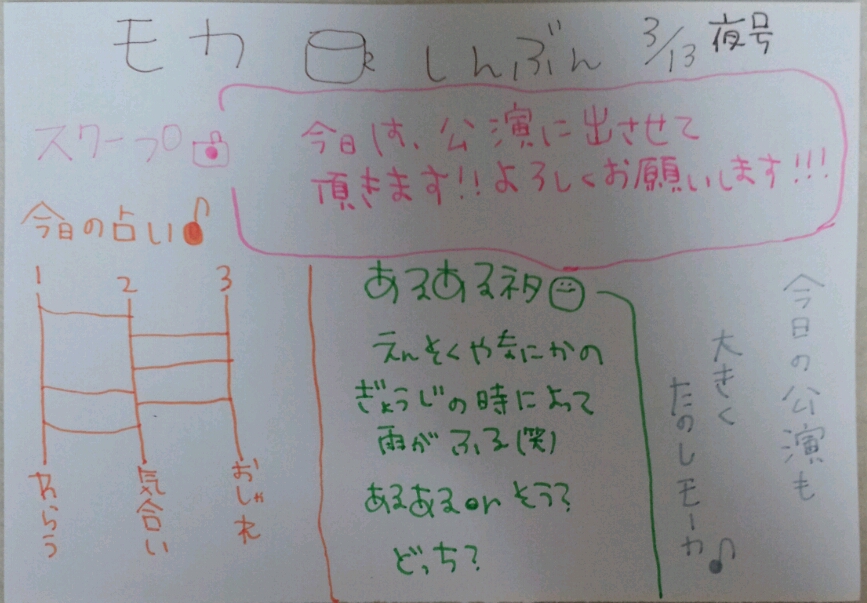 モカ しんぶん 3/13 夜号
スクープ
今日は、公演に出させて
頂きます!!よろしくお願いします!!!
今日の占い
1 2 3
わらう
気合い
おしゃれ
あるあるネタ
えんそくやなにかの
ぎょうじの時によって
雨がふる(笑)
あるあるorそう?
どっち?
今日の公演も
大きく
たのしモーカ♪